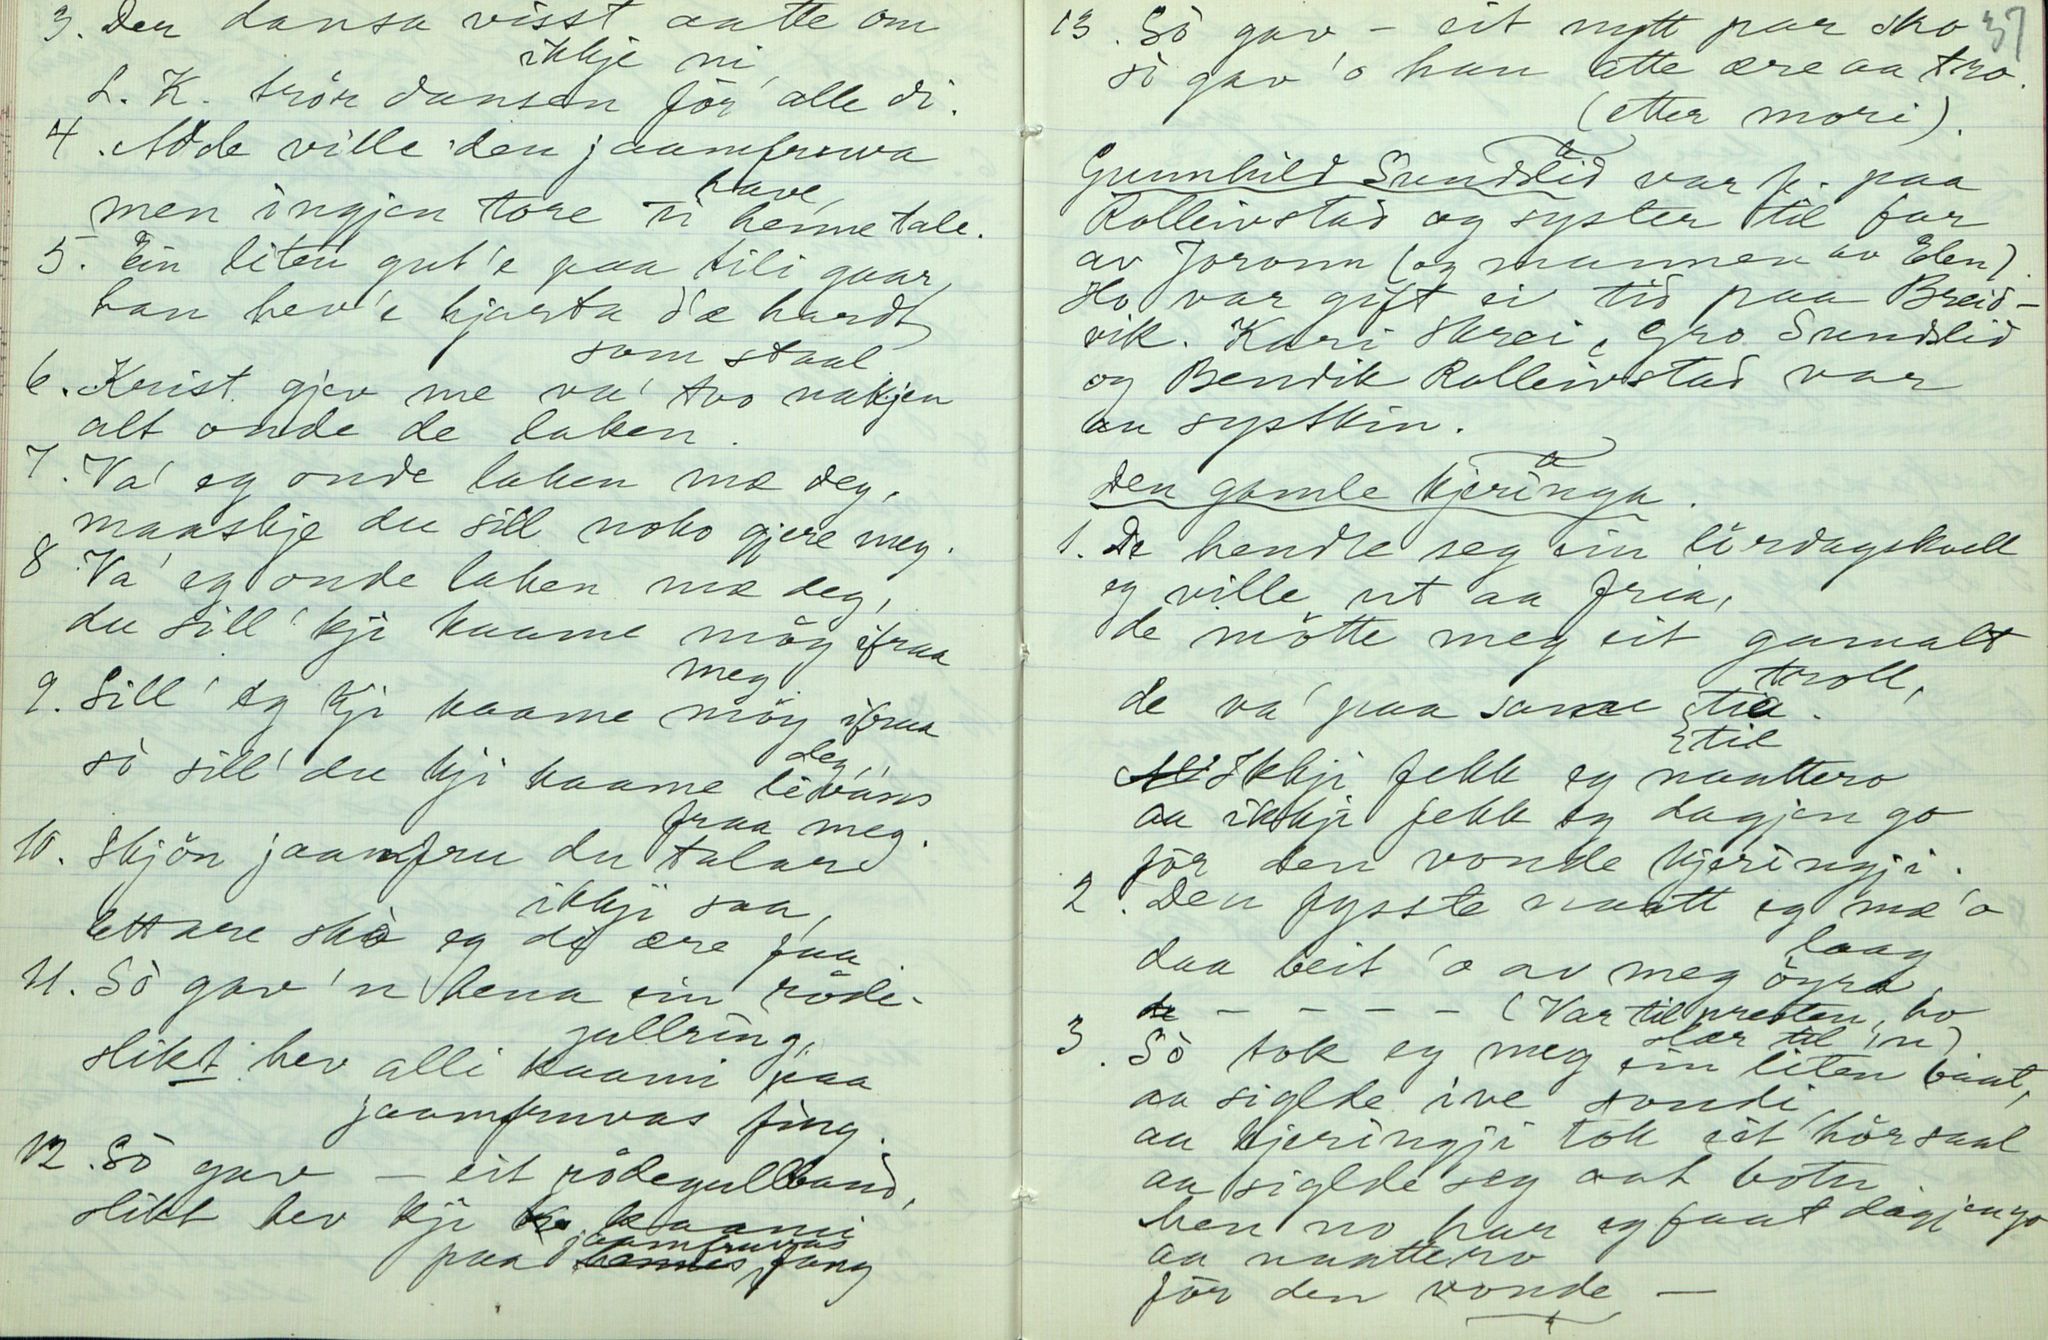 3. Der dansa visst aatte om
ikkje ni,
L. K. trör dansen för alle di.
4. Adde ville den jaamfruva
have,
men ingjen tore ti henne tale.
5. Ein liten gut'e paa tili gaar,
han hev'e hjarta d'æ hardt
som staal.
6. Krist gjev me va' tvo nakjen
alt onde de laken.
7. Va' eg onde laken mæ deg,
maaskje du sill noko gjere meg.
8. Va' eg onde laken mæ deg,
du sill' kji kaame möy ifraa
meg.
9. Sill' eg kji kaame möy ifraa
deg,
sò sill' du kji kaame livans
fraa meg.
10. Skjön jaamfru du talar
ikkji saa,
ettare skò eg di ære faa.
11. Sò gav'n hena ein röde-
gullring,
slikt hev alli kaami paa
jaamfruvas fing.
12. Sò gav — eit rödegullband,
slikt hev kji kaami
jaamfruvas
paa hennes fang
37
13. Sò gav — eit nytt par sko
sò gav'o han ette ære aa tro.
(etter mori).
Gunnhild Sundslid var k. paa
Rolleivstad og syster til far
av Joronn (og mannen av Elen).
Ho var gift ei tid paa Breid-
vik. Kari Skrei, Gro Sundslid
og Bendik Rolleivstad var
au systkin.
Den gamle kjeringa.
1. De hendte seg ein lördagskvell
eg ville ut aa fria,
de mötte meg eit gamalt
troll,
de va' paa same tia.
til
Ikkji fekk eg naattero
aa ikkji fekk eg dagjen go
för den vonde kjeringji.
2. Den fysste naatt eg mæ'o
laag
daa beit'o av meg öyra
de — — — — — (Var til presten, ho
slær til'n)
3. Sò tok eg meg ein liten baat,
aa siglde ive sondi,
aa kjeringji tok eit hörsaal
aa siglde seg aat botn.
Men no har eg faat dagjen go
aa naattero
för den vonde —